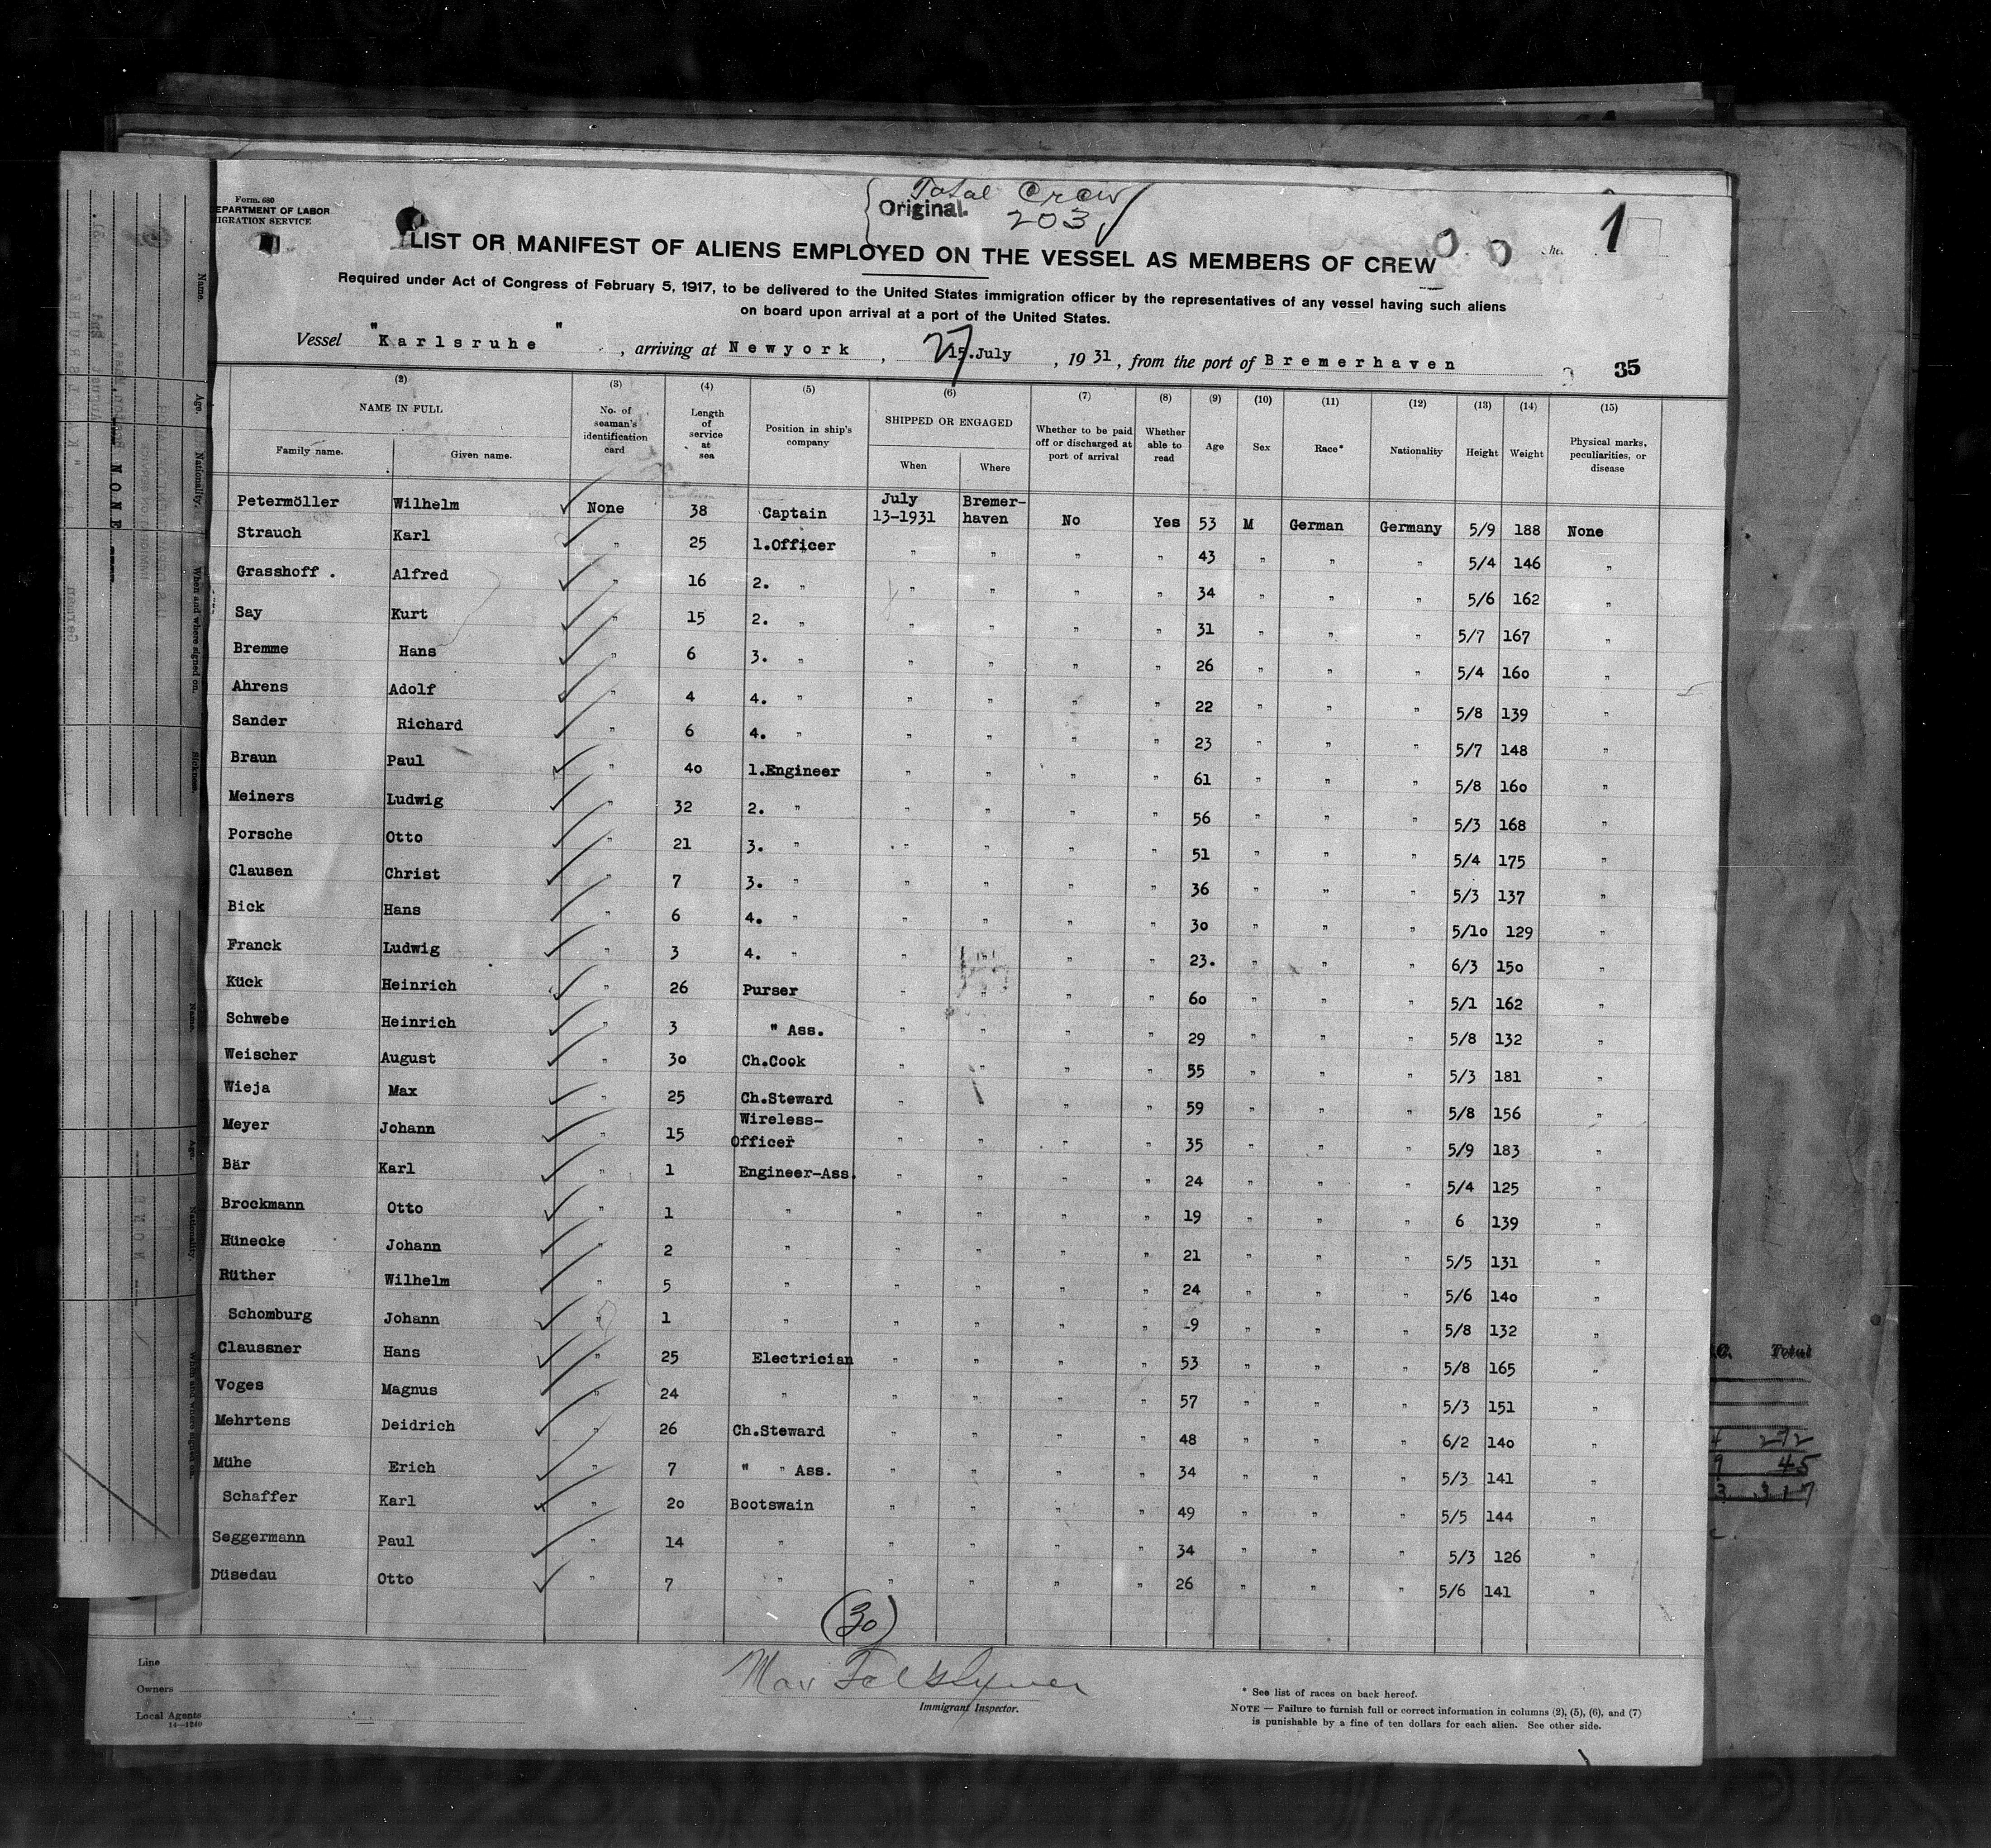 Total Crew
Original. 203
Form. 680
DEPARTMENT OF LABOR
MIGRATION SERVICE
1
LIST OR MANIFEST OF ALIENS EMPLOYED ON THE VESSEL AS MEMBERS OF CREW
Required under Act of Congress of February 5, 1917, to be delivered to the United States immigration officer by the representatives of any vessel having such aliens
on board upon arrival at a port of the United States.
Vessel "Karlsruhe", arriving at Newyork, 27 15.July, 1931, from the port of Bremerhaven
35
(2) (3) (4) (5) (6) (7) (8) (9) (10) (11) (12) (13) (14) (15)
NAME IN FULL No. of seaman's identification card Length of service at sea Position in ship's company SHIPPED OR ENGAGED Whether to be paid off or discharged at port of arrival Whether able to read Age Sex Race* Nationality Height Weight Physical marks, peculiarities, or disease
Family name. Given name. When Where
Petermöller Wilhelm None 38 Captain July 13-1931 Bremer-haven No Yes 53 M German Germany 5/9 188 None
Strauch Karl " 25 1.Officer " " " " 43 " " " 5/4 146 "
Grasshoff . Alfred " 16 2. " " " " " 34 " " " 5/6 162 "
Say Kurt " 15 2. " " " " " 31 " " " 5/7 167 "
Bremme Hans " 6 3. " " " " " 26 " " " 5/4 160 "
Ahrens Adolf " 4 4. " " " " " 22 " " " 5/8 139 "
Sander Richard " 6 4. " " " " " 23 " " " 5/7 148 "
Braun Paul " 40 1.Engineer " " " " 61 " " " 5/8 160 "
Meiners Ludwig " 32 2. " " " " " 56 " " " 5/3 168 "
Porsche Otto " 21 3. " " " " " 51 " " " 5/4 175 "
Clausen Christ " 7 3. " " " " " 36 " " " 5/3 137 "
Bick Hans " 6 4. " " " " " 30 " " " 5/10 129 "
Franck Ludwig " 3 4. " " " " " 23. " " " 6/3 150 "
Kück Heinrich " 26 Purser " " " " 60 " " " 5/1 162 "
Schwebe Heinrich " 3 " Ass. " " " " 29 " " " 5/8 132 "
Weischer August " 30 Ch.Cook " " " " 55 " " " 5/3 181 "
Wieja Max " 25 Ch.Steward " " " " 59 " " " 5/8 156 "
Meyer Johann " 15 Wireless-Officer " " " " 35 " " " 5/9 183 "
Bär Karl " 1 Engineer-Ass. " " " " 24 " " " 5/4 125 "
Brockmann Otto " 1 " " " " " 19 " " " 6 139 "
Hünecke Johann " 2 " " " " " 21 " " " 5/5 131 "
Rüther Wilhelm " 5 " " " " " 24 " " " 5/6 140 "
Schomburg Johann " 1 " " " " " -9 " " " 5/8 132 "
Claussner Hans " 25 Electrician " " " " 53 " " " 5/8 165 "
Voges Magnus " 24 " " " " " 57 " " " 5/3 151 "
Mehrtens Deidrich " 26 Ch.Steward " " " " 48 " " " 6/2 140 "
Mühe Erich " 7 " " Ass. " " " " 34 " " " 5/3 141 "
Schaffer Karl " 20 Bootswain " " " " 49 " " " 5/5 144 "
Seggermann Paul " 14 " " " " " 34 " " " 5/3 126 "
Düsedau Otto " 7 " " " " " 26 " " " 5/6 141 "
(30)
Line
Owners
Local Agents
14-1240
Max
Immigrant Inspector.
* See list of races on back hereof.
NOTE — Failure to furnish full or correct information in columns (2), (5), (6), and (7)
is punishable by a fine of ten dollars for each alien. See other side.
Total
272
45
317
Name.
Age.
Nationality.
When and where signed on.
Sickness.
NONE
Name.
Age.
Nationality.
When and where signed on.
NONE